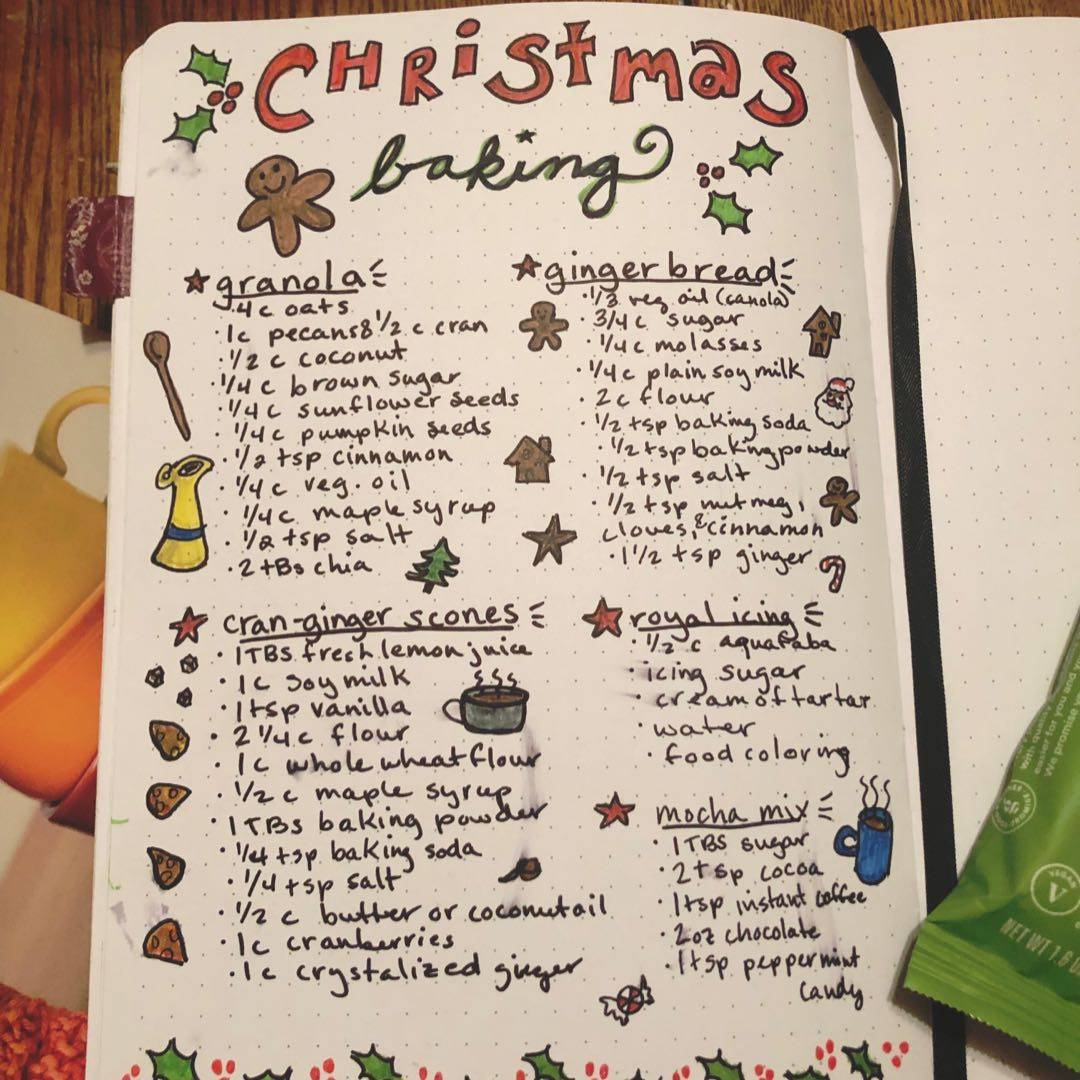 Christmas
baking
granola
4 c oats
1c pecans & 1/2 c cran
1/2 c coconut
1/4 c brown sugar
1/4 c sunflower seeds
1/4 c pumpkin seeds
1/2 tsp cinnamon
1/4 c veg. oil
1/4 c maple syrup
1/2 tsp salt
2 tBs chia
gingerbread
1/3 veg oil (canola)
3/4 c sugar
1/4 c molasses
1/4 c plain soy milk
2 c flour
1/2 tsp baking soda
1/2 tsp baking powder
1/2 tsp salt
1/2 tsp nutmeg,
cloves, & cinnamon
1 1/2 tsp ginger
cran-ginger scones
1 TBS fresh lemon juice
1c soy milk
1 tsp vanilla
2 1/4 c flour
1c whole wheat flour
1/2 c maple syrup
1 TBS baking powder
1/4 tsp baking soda
1/4 tsp salt
1/2 c butter or coconut oil
1c cranberries
1c crystalized ginger
royal icing
1/2 c aquafaba
icing sugar
cream of tartar
water
food coloring
mocha mix
1 TBS sugar
2 tsp cocoa
1 tsp instant coffee
2 oz chocolate
1 tsp peppermint
candy
easier for you and
We promise
VEGAN
V
NET WT 1.6